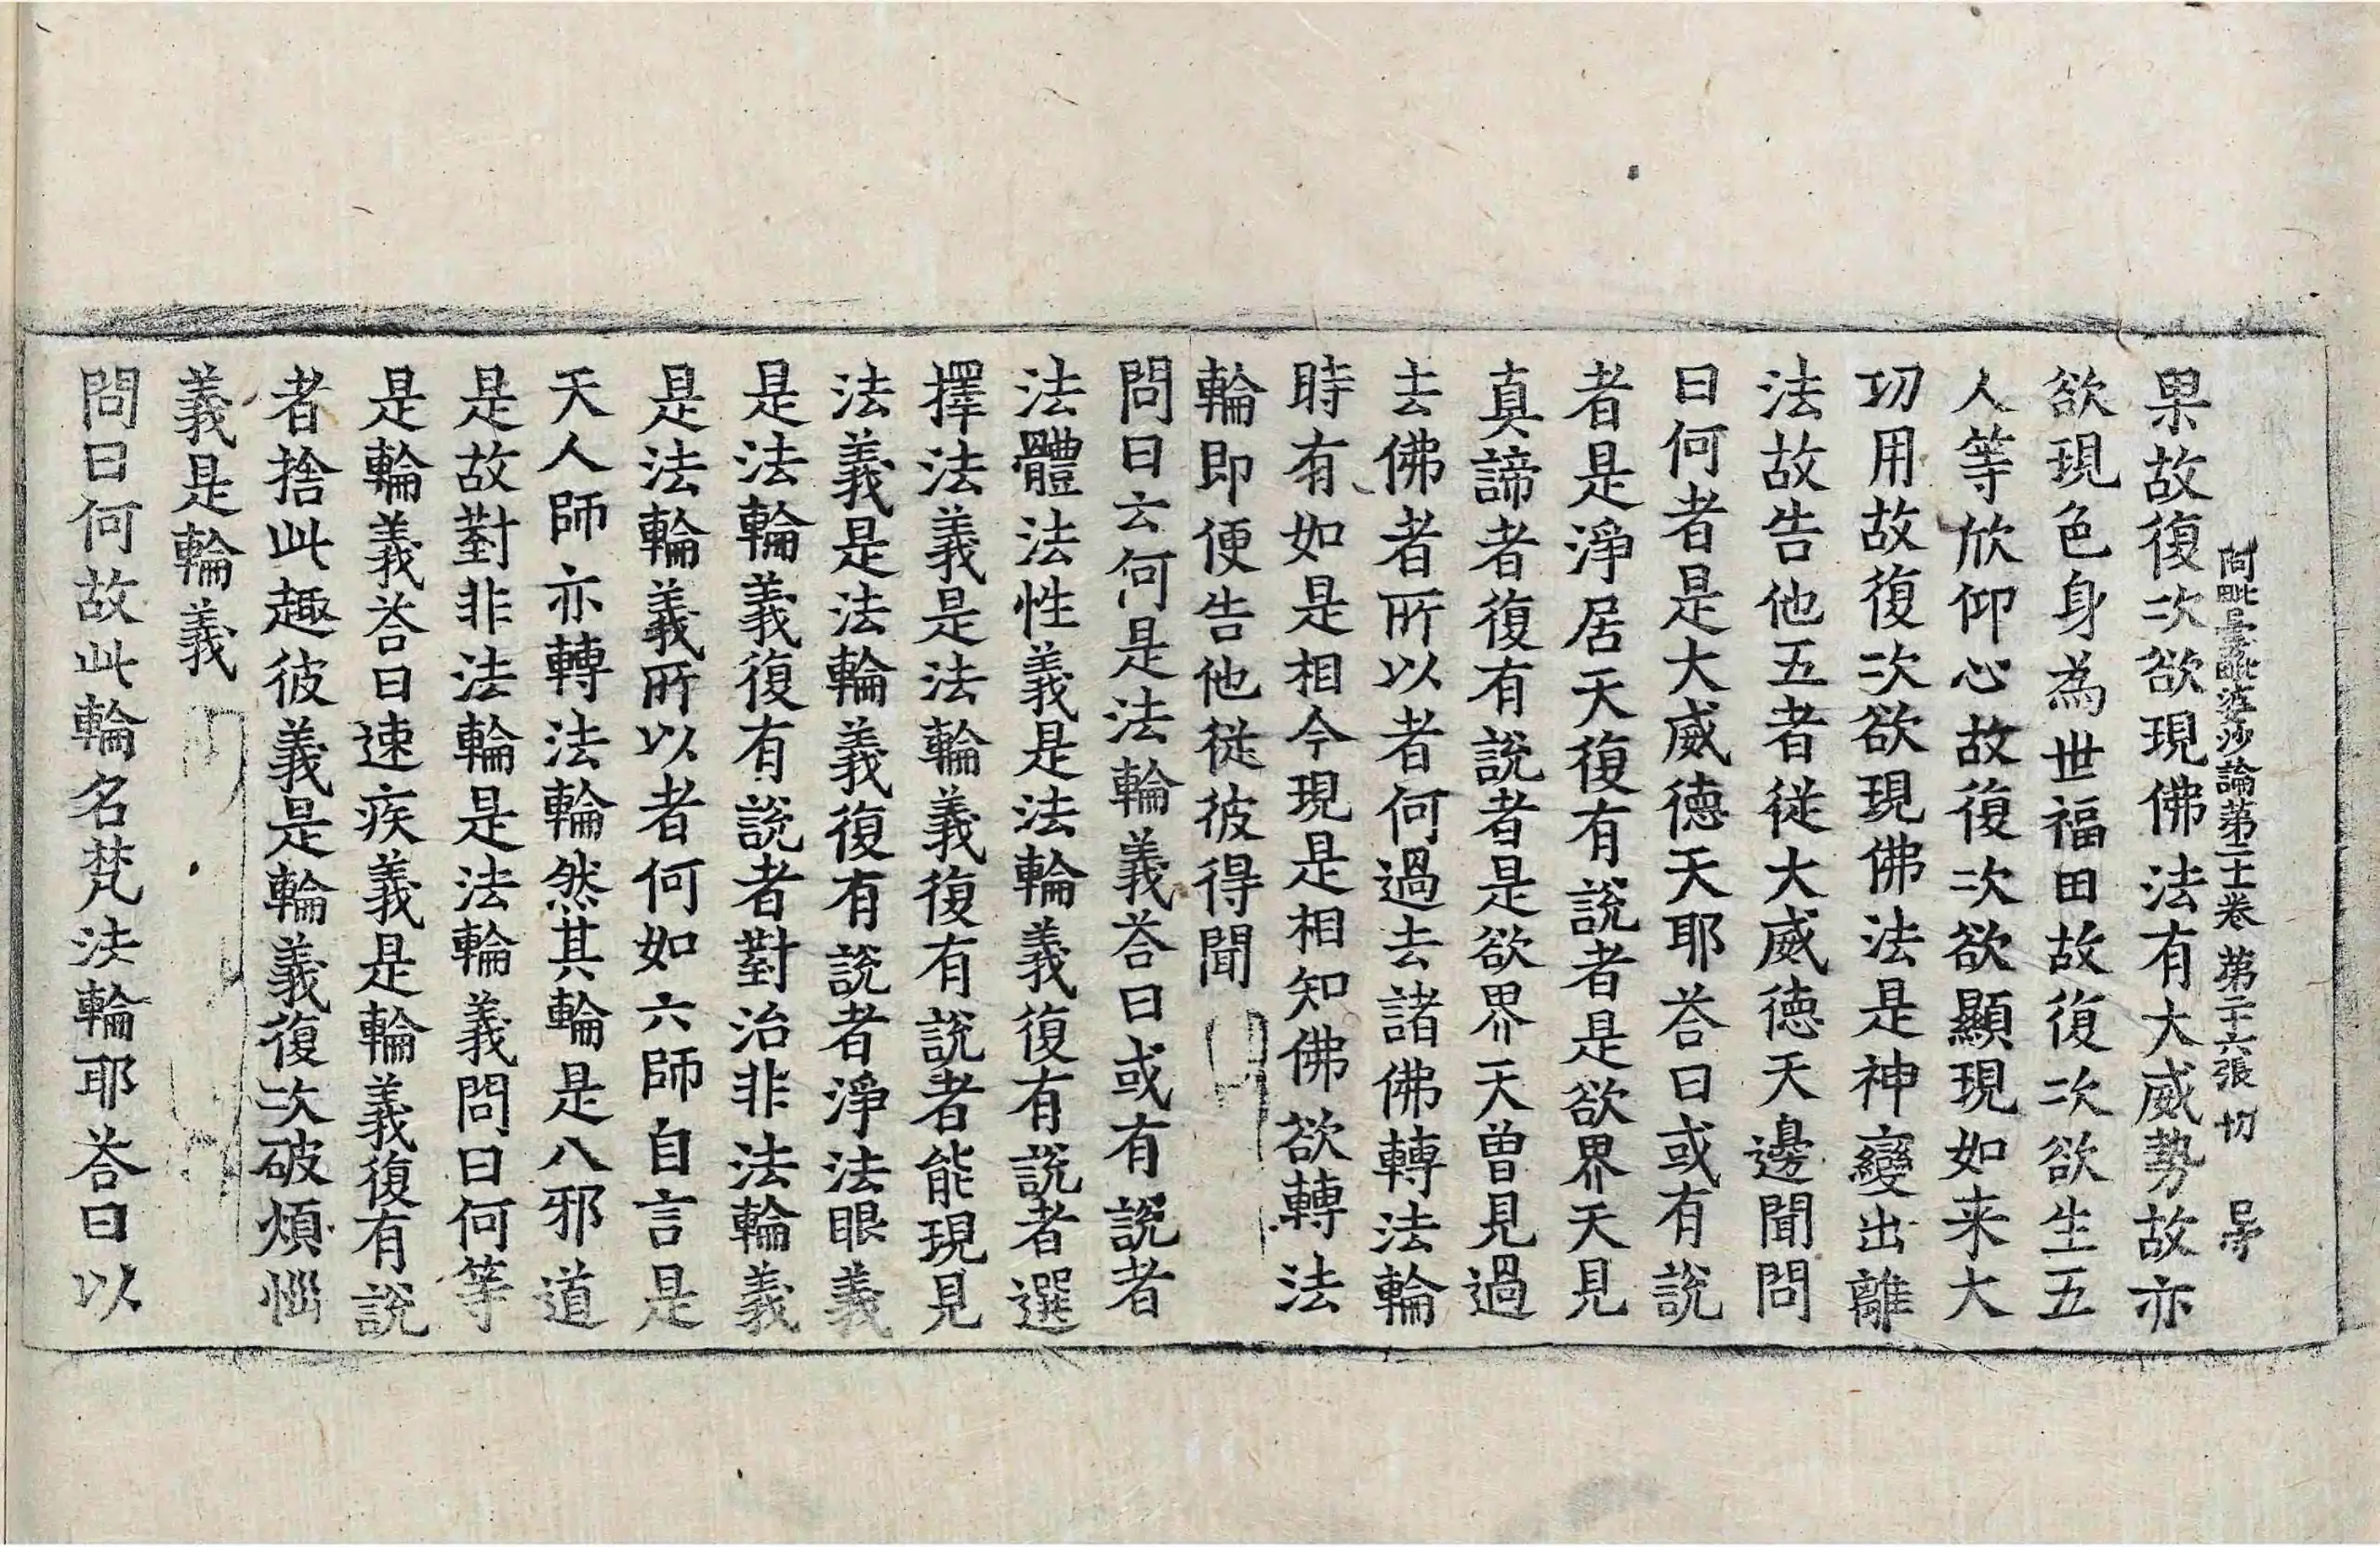 果故復次欲現佛法有大威勢故亦
阿毗曇毗婆沙論第二十一卷 第二十六張 切
欲現色身為世福田故復次欲生五
人等欣仰心故復次欲顯現如来大
功用故復次欲現佛法是神變出離
法故告他五者從大威德天邊聞問
曰何者是大威德天耶荅曰或有說
者是淨居天復有說者是欲界天見
真諦者復有說者是欲界天曾見過
去佛者所以者何過去諸佛轉法輪
時有如是相今現是相知佛欲轉法
輪即便告他從彼得聞
問曰云何是法輪義荅曰或有說者
法體法性義是法輪義復有說者選
擇法義是法輪義復有說者能現見
法義是法輪義復有說者淨法眼義
是法輪義復有說者對治非法輪義
是法輪義所以者何如六師自言是
天人師亦轉法輪然其輪是八邪道
是故對非法輪是法輪義問曰何等
是輪義荅曰速疾義是輪義復有說
者捨此趣彼義是輪義復次破煩惱
義是輪義
問曰何故此輪名梵法輪耶荅曰以